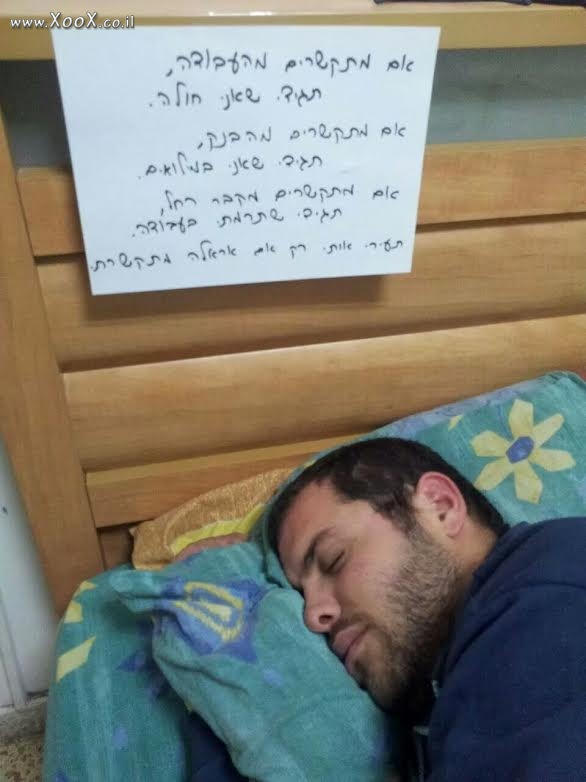 www.XooX.co.il
אם מתקשרים מהעבודה,
תגידי שאני חולה.
אם מתקשרים מהבנק,
תגידי שאני במילואים.
אם מתקשרים מקבר רחל,
תגידי שתרמתי בעבודה.
תעירי אותי רק אם אראלה מתקשרת.